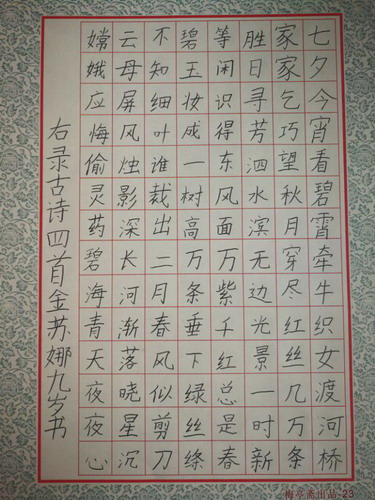 七夕今宵看碧霄牵牛织女渡河桥
家家乞巧望秋月穿尽红丝几万条
胜日寻芳泗水滨无边光景一时新
等闲识得东风面万紫千红总是春
碧玉妆成一树高万条垂下绿丝绦
不知细叶谁裁出二月春风似剪刀
云母屏风烛影深长河渐落晓星沉
嫦娥应悔偷灵药碧海青天夜夜心
右录古诗四首金苏娜九岁书
梅亭斋出品-23